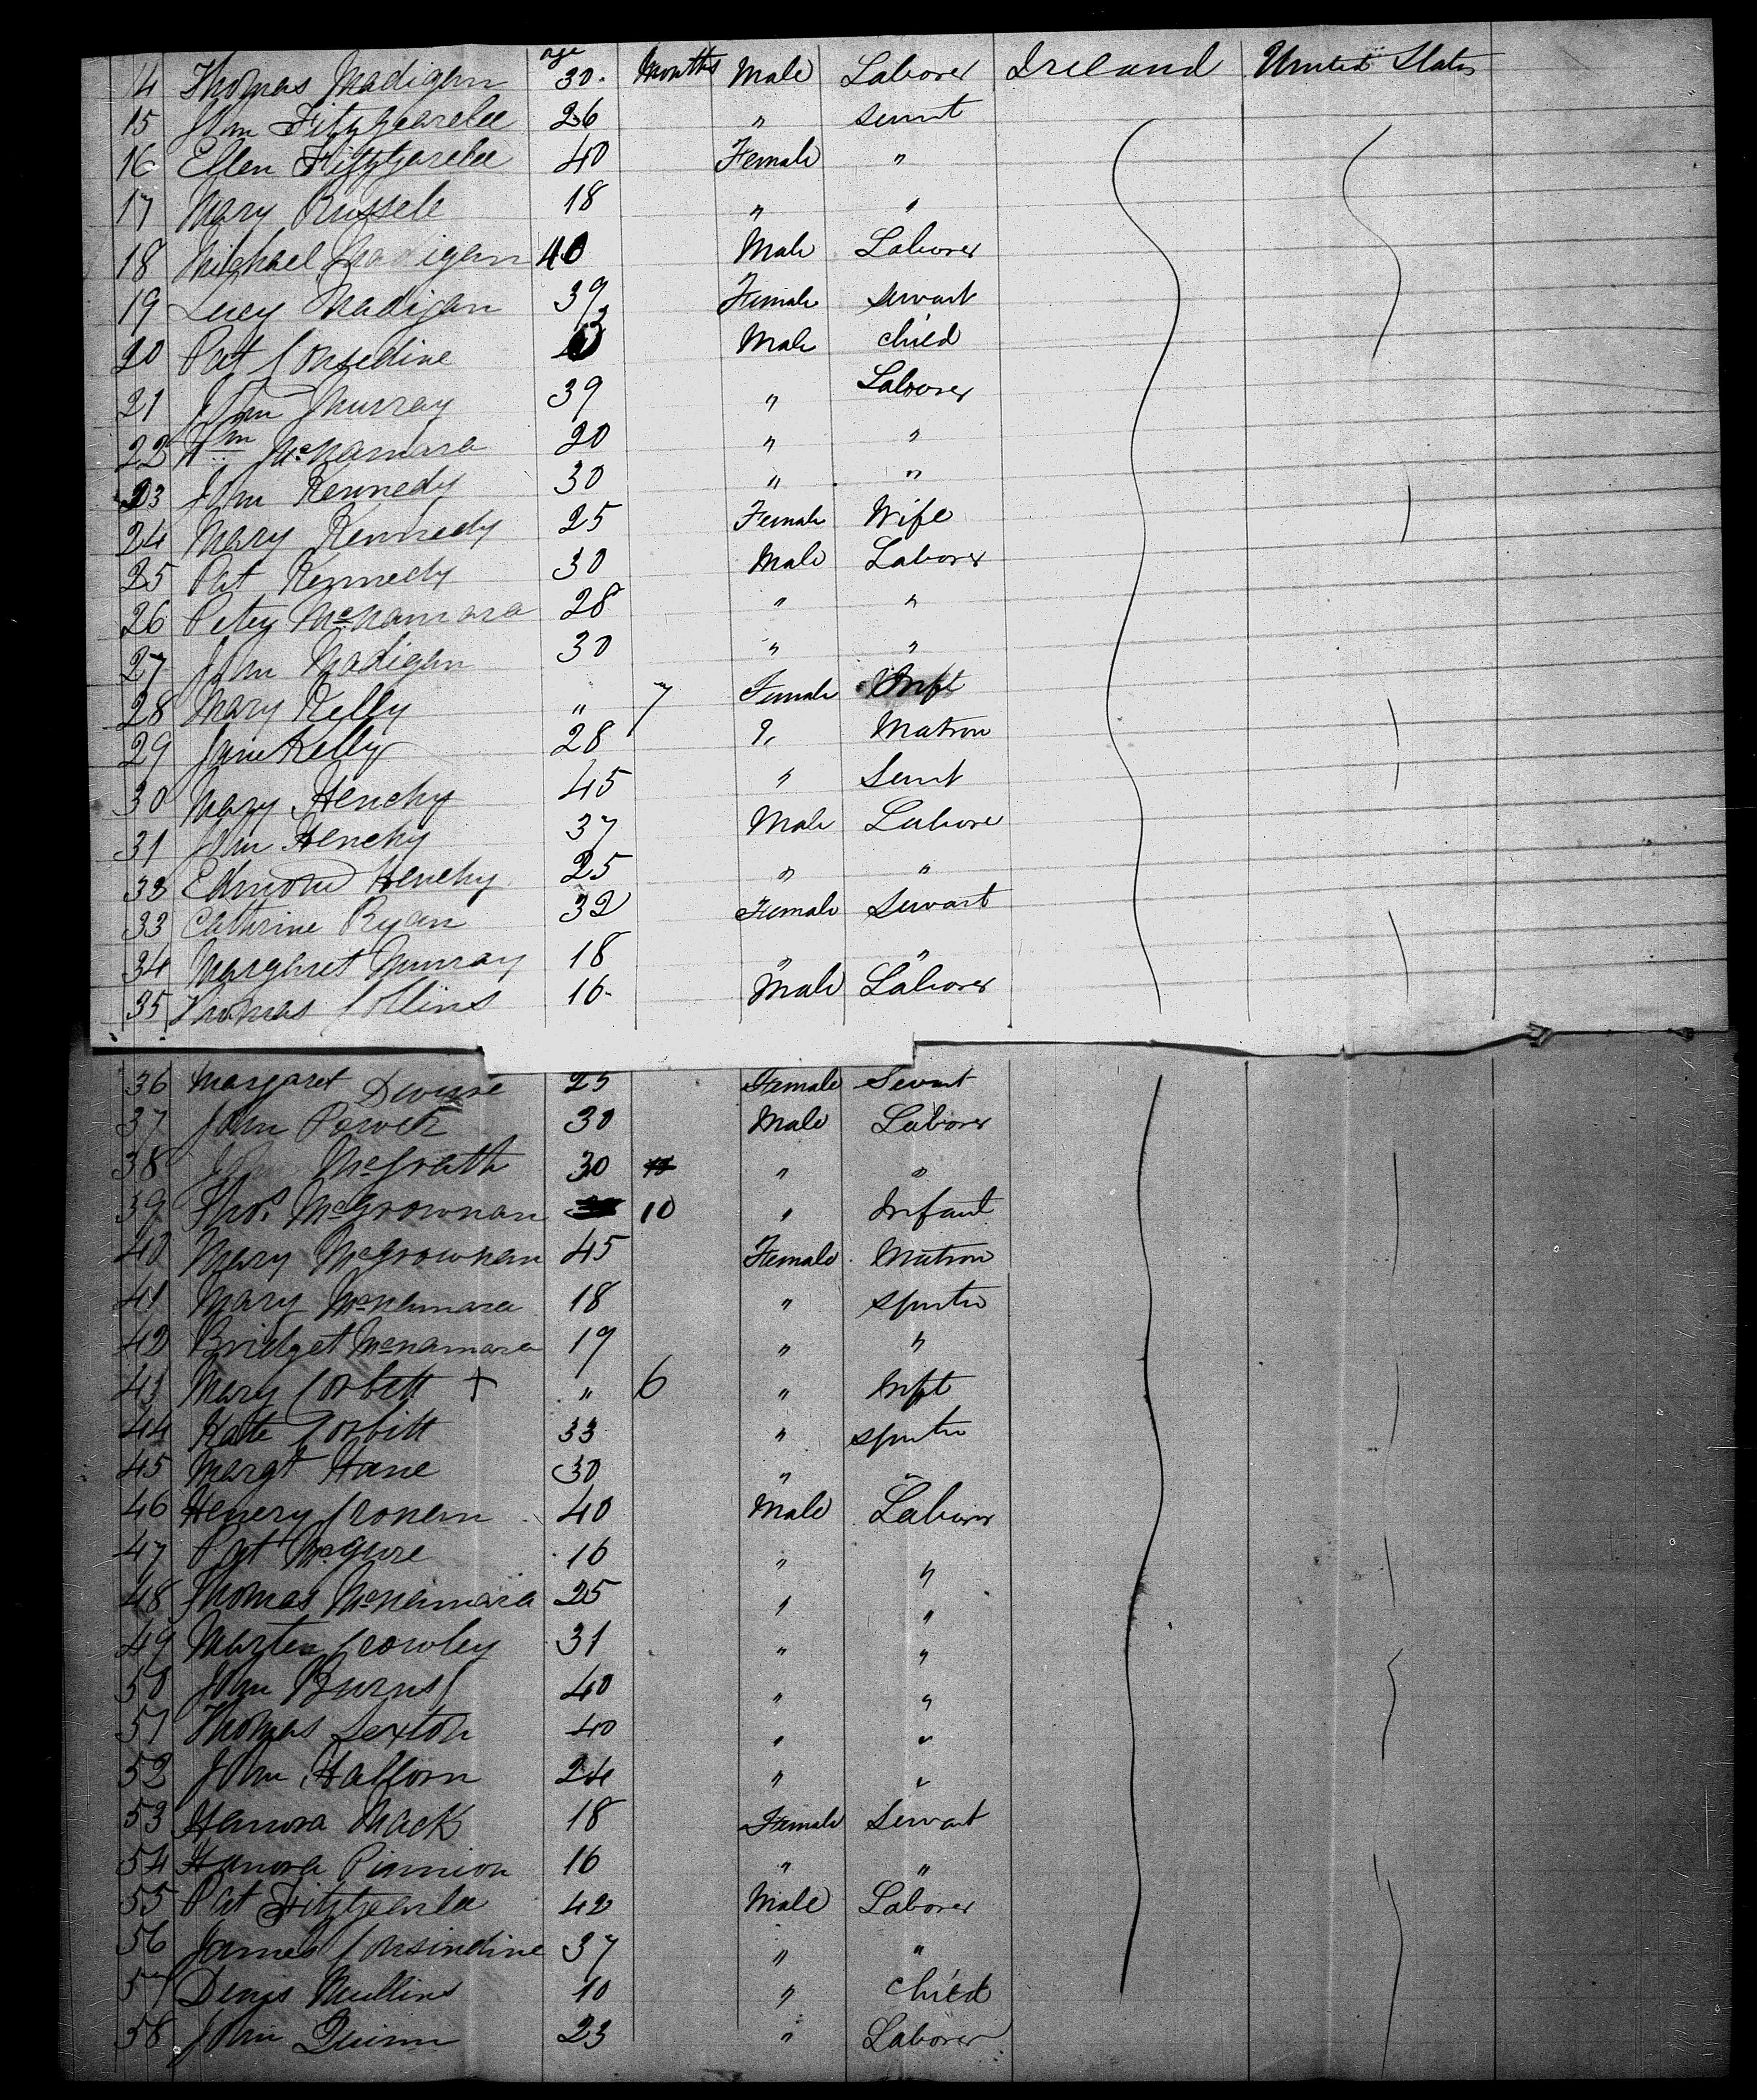 age
14 Thomas Madigan 30. Months Male Laborer Ireland United States
15 John Fitzgearelee 26 " Servnt
16 Ellen Fitzgarelee 40 Female "
17 Mary Russele 18 " "
18 Michael Madigan 40 Male Laborer
19 Lucy Madigan 39 Female Servant
20 Pat Consedine 13 Male Chied
21 John Murray 39 " Laborer
22 Wm McNamara 20 " "
23 John Kennedy 30 " "
24 Mary Kennedy 25 Female Wife
25 Pat Kennedy 30 Male Laborer
26 Petey McNamara 28 " "
27 John Madigan 30 " "
28 Mary Kelly " 7 Female Inft
29 Jane Kelly 28 " Matron
30 Mary Henchy 45 " Servt
31 John Henchy 37 Male Labore
32 Edmond Henchy 25 " "
33 Cathrine Ryan 32 Female Servant
34 Margaret Murray 18 " "
35 Thomas Collins 16- Male Laborer
36 Margaret Devine 25 Female Servant
37 John Power 30 Male Laborer
38 John McGrath 30 " "
39 Thos. McGrownan 10 " Infant
40 Mary McGrownan 45 Female Matron
41 Mary McNamara 18 " Spnter
42 Bridget McNamara 19 " "
43 Mary Corbett + " 6 " Inft
44 Kate Corbitt 33 " Spnter
45 Margt Hane 30 " "
46 Henery Cronen 40 Male Laborer
47 Pat McGuire 16 " "
48 Thomas McNamara 25 " "
49 Marten Crowley 31 " "
50 John Burns 40 " "
51 Thomas Sexton 40 " "
52 John Hallorn 24 " "
53 Hanora Mack 18 Female Servant
54 Hanora 16 " "
55 Pat Fitzgearlee 42 Male Laborer
56 James Consindine 37 " "
57 Denis Mullins 10 " Chied
58 John Quinn 23 " Laborer